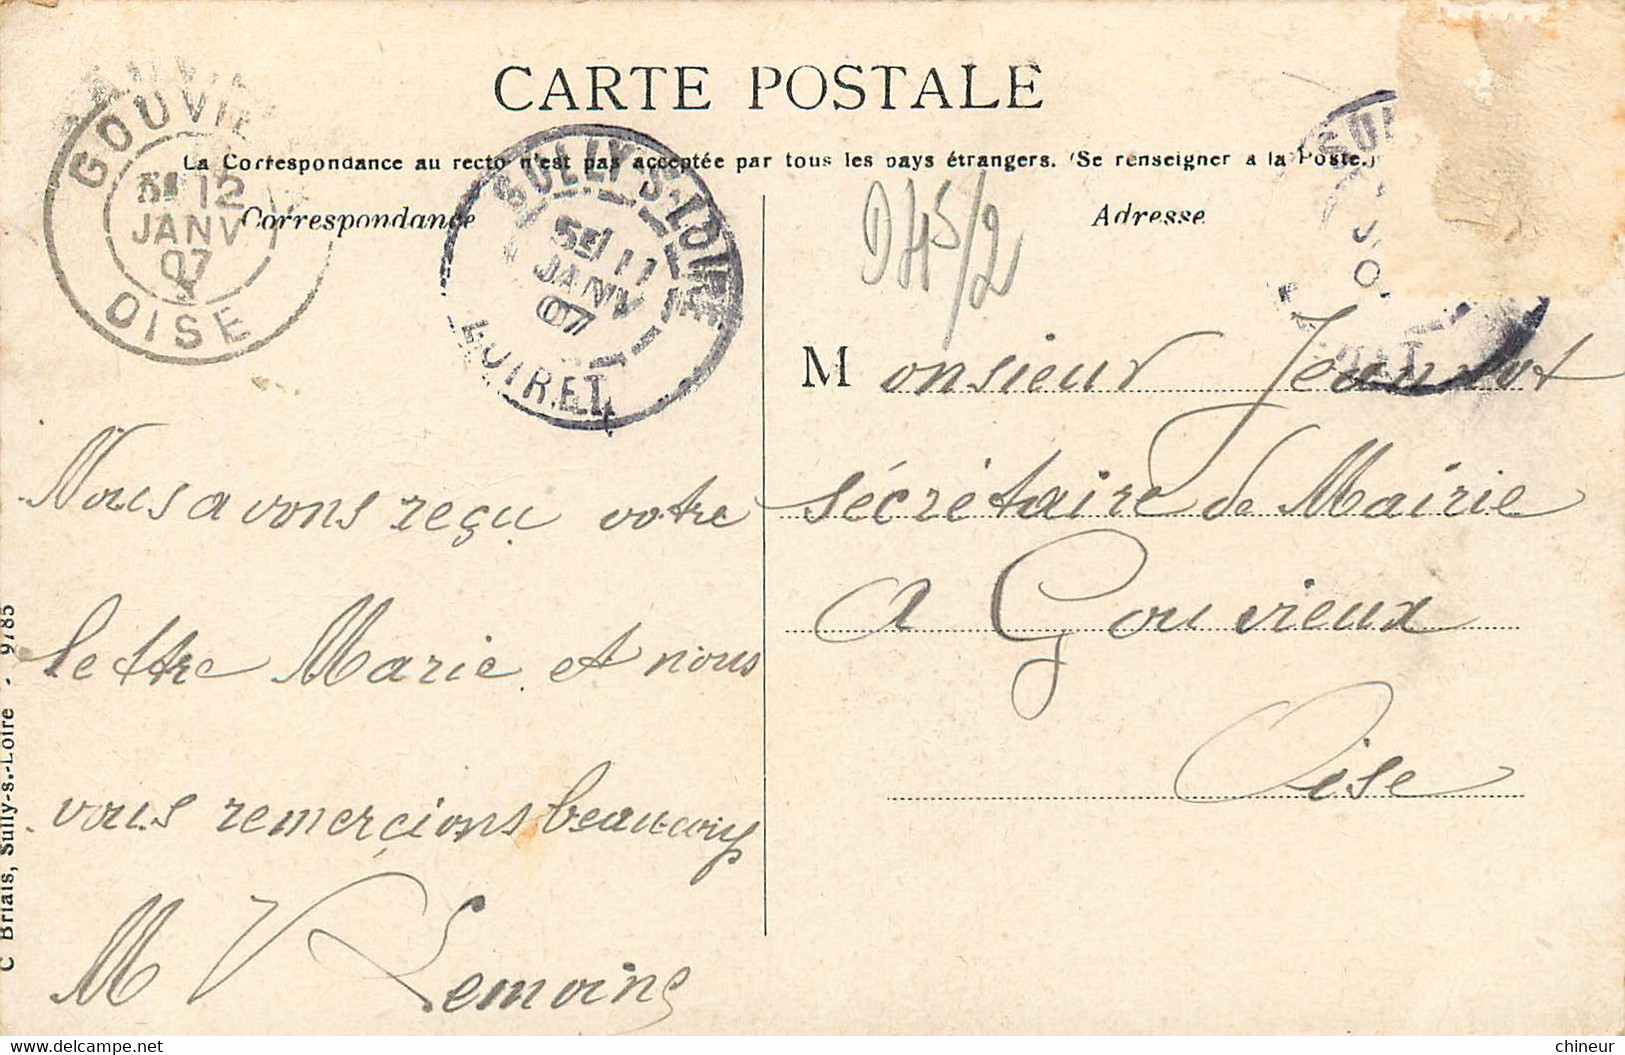 CARTE POSTALE
La Correspondance au recto n'est pas acceptée par tous les pays étrangers. (Se renseigner à la Poste.)
Correspondance
Adresse
GOUVIE
5E 12
JANV
07
OISE
SULLY-S-LOIRE
5E 11
JANV
07
LOIRET
SUL
D45/2
Nous avons reçu votre
lettre Marie et nous
vous remerçions beaucoup
M V Lemoine
Monsieur Jeannot
sécrétaire de Mairie
A Gouvieux
Oise
C Briais, Sully-s.-Loire - 9785
delcampe.net
chineur